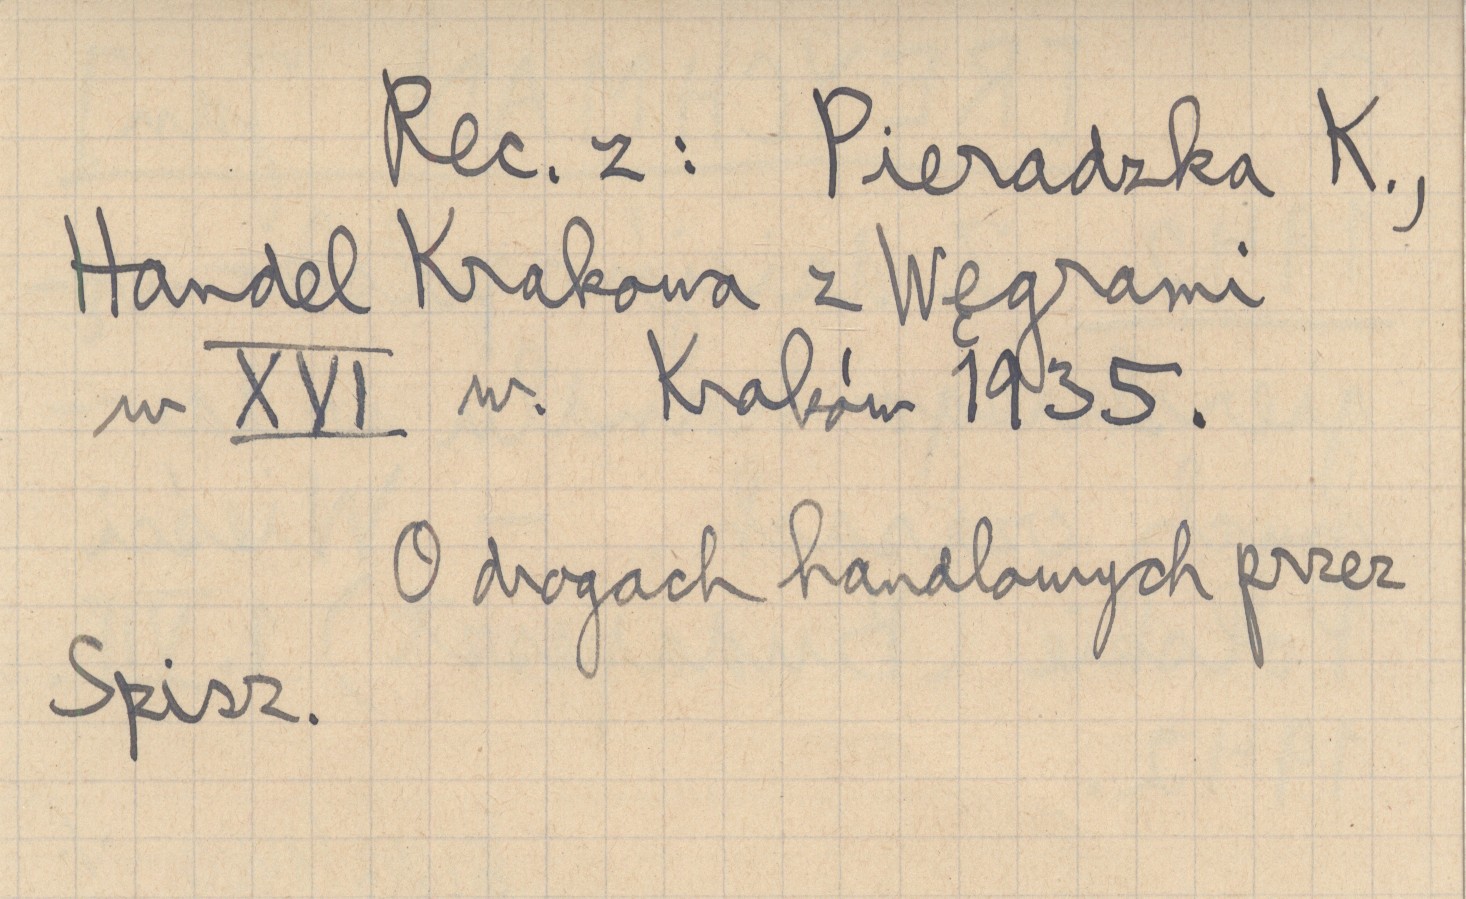 Rec. z: Pieradzka K.,
Handel Krakowa z Węgrami
w XVI w. Kraków 1935.
O drogach handlowych przez
Spisz.